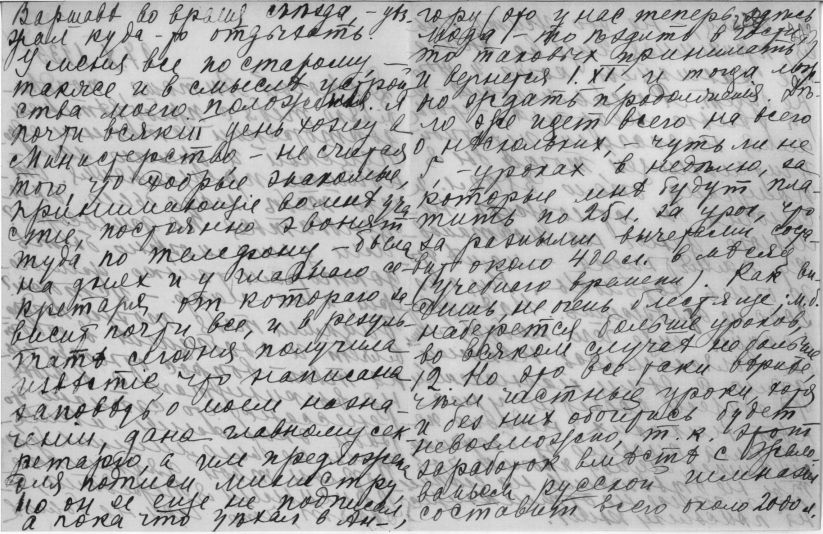 Варшавѣ во время съѣзда, – уѣз-
жал куда-то отдыхать
У меня все по старому, –
также и в смыслѣ устрой
ства моего положенія. Я
почти всякій день хожу в
Министерство – не считая
того, что добрые знакомые,
принимающіе во мнѣ уча
стіе, постоянно звонят
туда по телефону – была
на днях и у главнаго се-
кретаря, от котораго за
висит почти все, и в резуль-
татѣ сегодня получила
извѣстіе, что написана
заповѣдь о моем назна-
чении, дана главному сек-
ретарю, а им предложена
для подписи министру
но он ее еще не подписал,
а пока что уѣхал в Ан-
гору (это у нас теперь здѣсь
мода – то ѣздить в гости
то таковых принимать)
и вернется 1. XI. и тогда мож
но ждать продолженія. Дѣ-
ло же идет всего на всего
о нѣскольких, – чуть ли не
5 – уроках в недѣлю, за
которые мнѣ будут пла-
тить по 25 л. за урок, что
за разными вычетами соста-
вит около 400 л. в мѣсяц
(учебнаго времени). Как ви
дишь не очень блестяще, м. б.
наберется больше уроков,
во всяком случаѣ не больше
12. Но это все-таки вѣрнѣе
чѣм частные уроки, хотя
и без них обойтись будет
невозможно, т. к. этот
заработок вмѣстѣ с
русской гимназіи
составит всего около 2000 л.